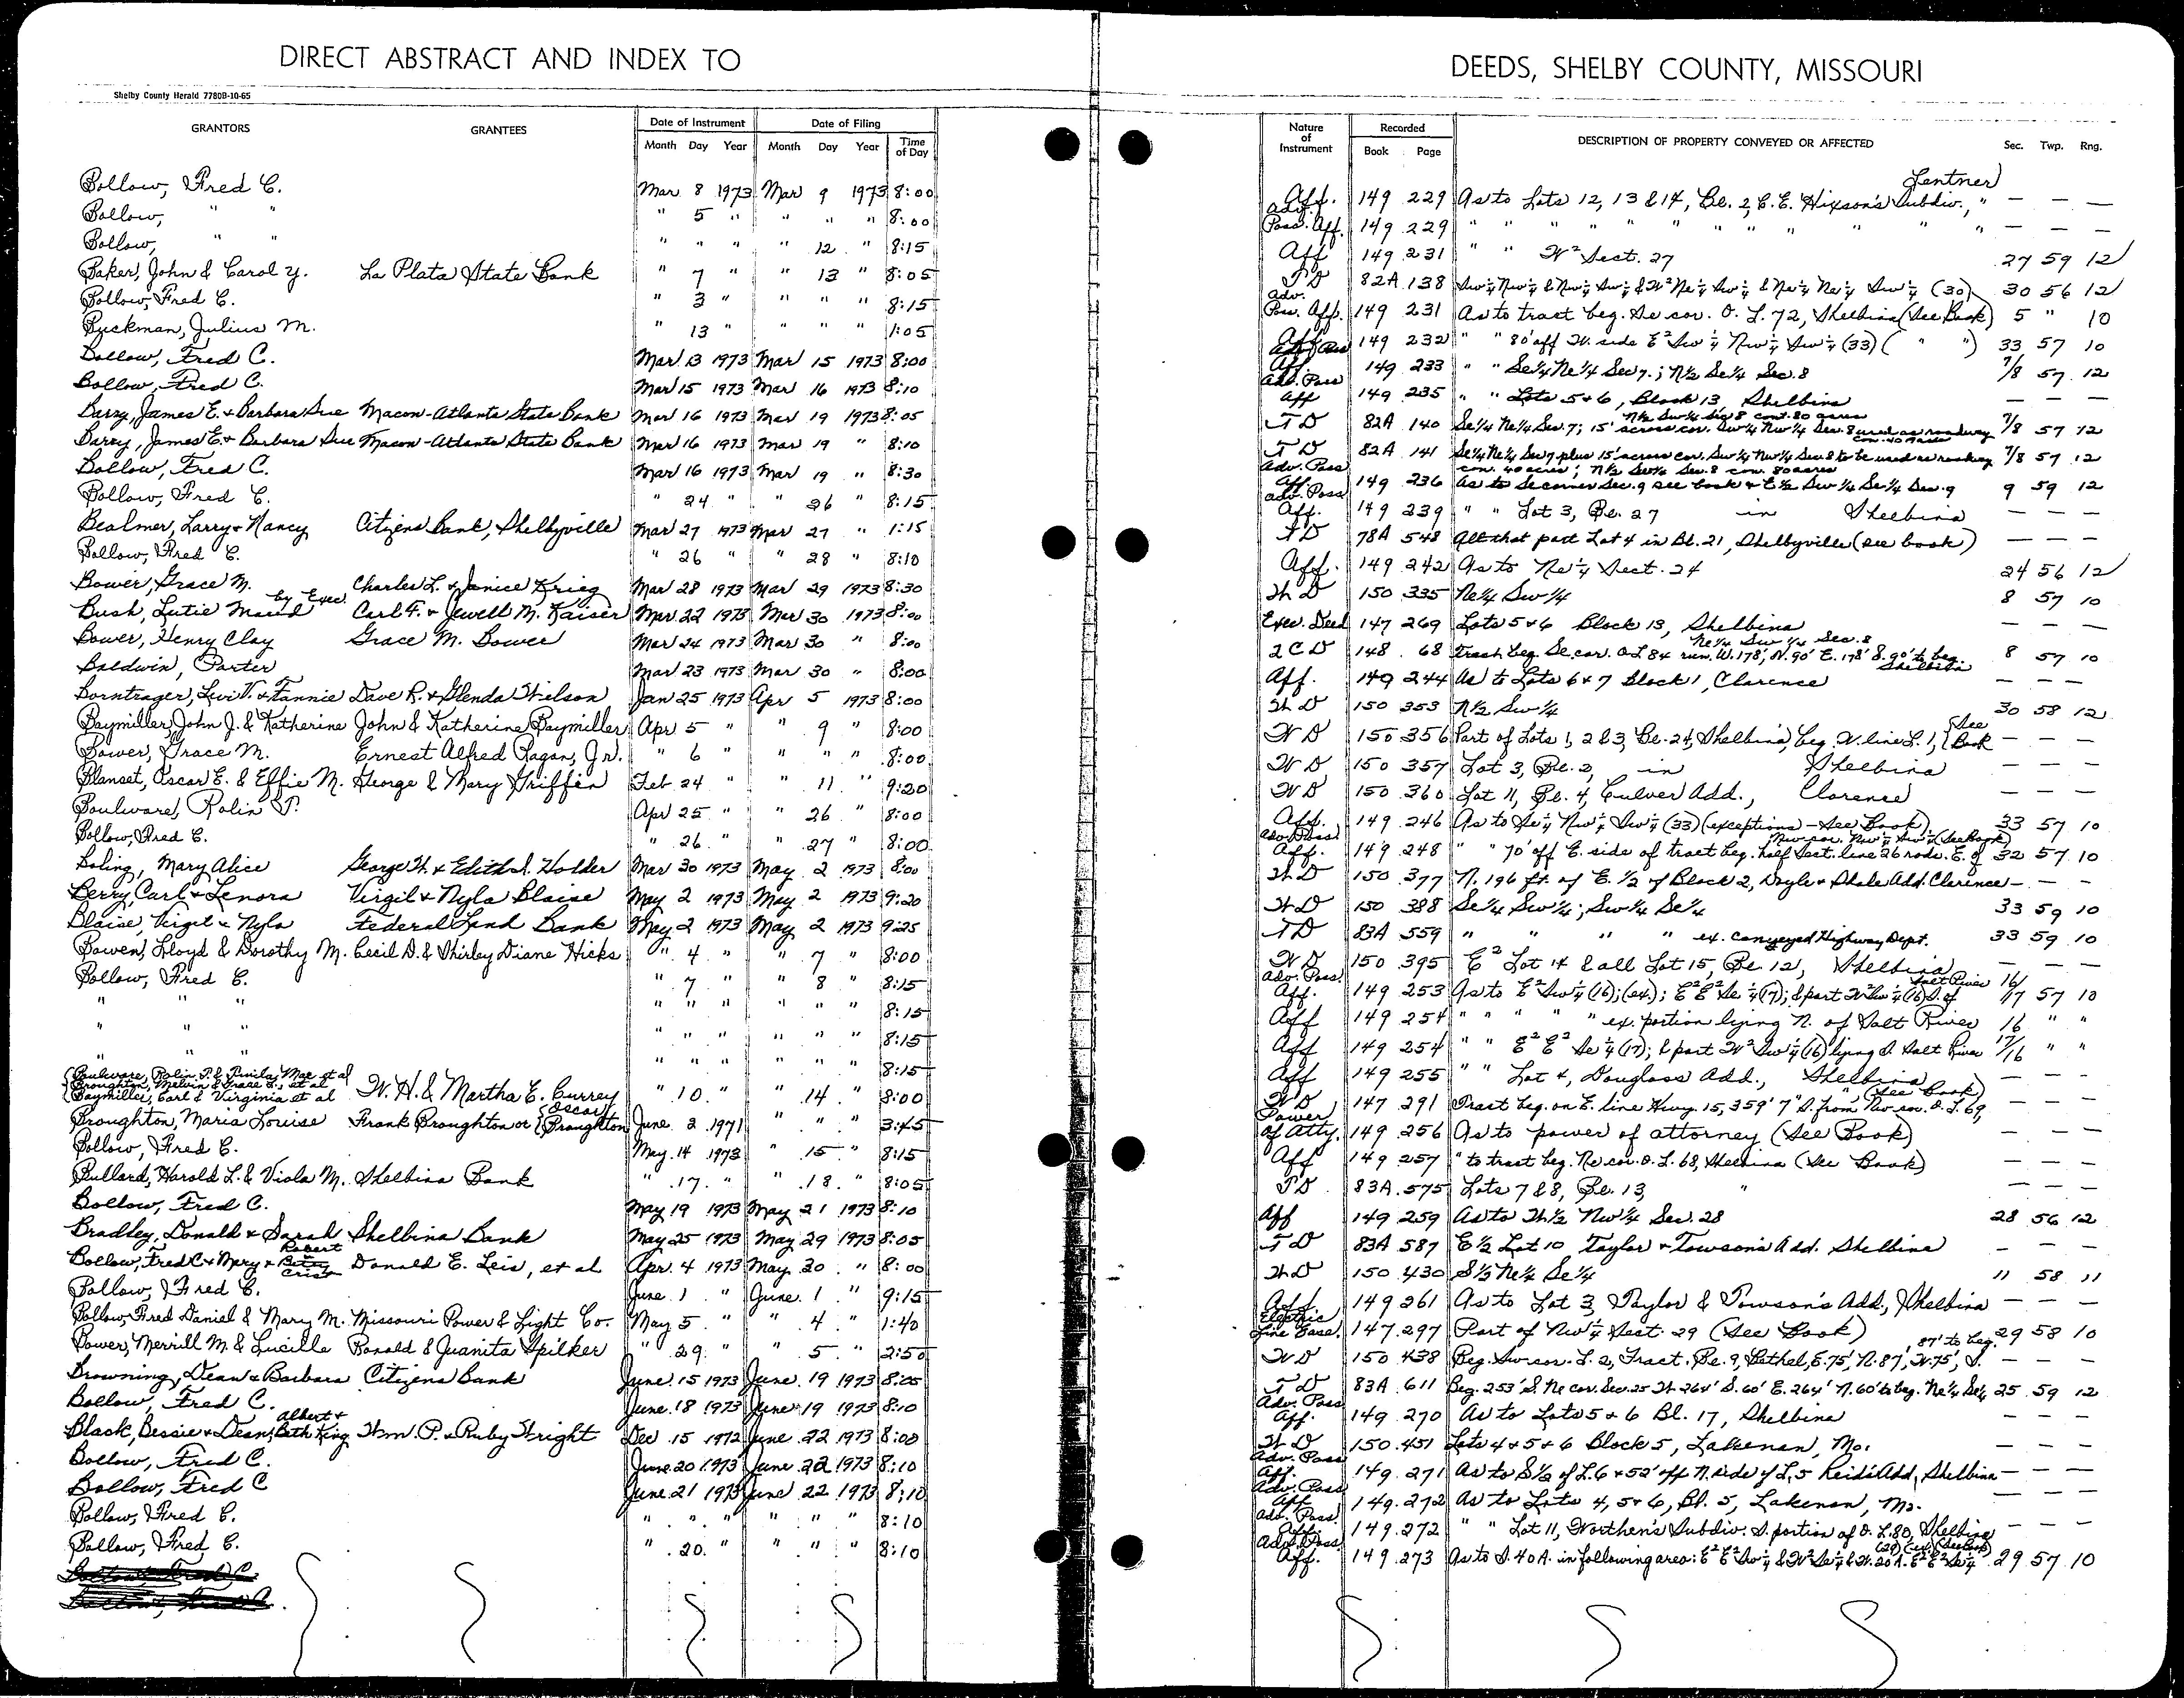 DIRECT ABSTRACT AND INDEX TO
DEEDS, SHELBY COUNTY, MISSOURI
Shelby County Herald 7780B-10-65
GRANTORS GRANTEES Date of Instrument Date of Filing
Month Day Year Month Day Year Time of Day
Nature of Instrument Recorded DESCRIPTION OF PROPERTY CONVEYED OR AFFECTED Sec. Twp. Rng.
Book Page
Bollow, Fred C. Mar 8 1973 Mar 9 1973 8:00
Bollow, " " " 5 " " " " 8:00
Bollow, " " " " " " 12 " 8:15
Baker, John & Carol Y. La Plata State Bank " 7 " " 13 " 8:05
Bollow, Fred C. " 3 " " " " 8:15
Buckman, Julius M. " 13 " " " " 1:05
Bollow, Fred C. Mar 13 1973 Mar 15 1973 8:00
Bollow, Fred C. Mar 15 1973 Mar 16 1973 8:10
Barry, James E. + Barbara Sue Macon-Atlanta State Bank Mar 16 1973 Mar 19 1973 8:05
Barry, James E. + Barbara Sue Macon-Atlanta State Bank Mar 16 1973 Mar 19 " 8:10
Bollow, Fred C. Mar 16 1973 Mar 19 " 8:30
Bollow, Fred C. " 24 " " 26 " 8:15
Bealmer, Larry + Nancy Citizens Bank, Shelbyville Mar 27 1973 Mar 27 " 1:15
Bollow, Fred C. " 26 " " 28 " 8:10
Bower, Grace M. Charles L. + Janice Krieg Mar 28 1973 Mar 29 1973 8:30
Bush, Lutie Maud by Exec. Carl F. + Jewell M. Kaiser Mar 22 1973 Mar 30 1973 8:00
Bower, Henry Clay Grace M. Bower Mar 24 1973 Mar 30 " 8:00
Baldwin, Porter Mar 23 1973 Mar 30 " 8:00
Borntrager, Levi V. + Fannie Dave R. + Glenda Wilson Jan 25 1973 Apr 5 1973 8:00
Baymiller, John J. & Katherine John & Katherine Baymiller Apr 5 " " 9 " 8:00
Bower, Grace M. Ernest Alfred Ragan, Jr. " 6 " " " " 8:00
Blanset, Oscar E. & Effie M. George & Mary Griffin Feb 24 " " 11 " 9:20
Boulware, Rolin P. Apr 25 " " 26 " 8:00
Bollow, Fred C. " 26 " " 27 " 8:00
Boling, Mary Alice George W. + Edith I. Holder Mar 30 1973 May 2 1973 8:00
Berry, Carl + Lenora Virgil + Nyla Blaise May 2 1973 May 2 1973 9:20
Blaise, Virgil + Nyla Federal Land Bank May 2 1973 May 2 1973 9:25
Bowen, Lloyd & Dorothy M. Cecil D. & Shirley Diane Hicks " 4 " " 7 " 8:00
Bollow, Fred C. " 7 " " 8 " 8:15
" " " " " " " " " 8:15
" " " " " " " " " 8:15
" " " " " " " " " 8:15
Boulware, Rolin P. & Twila Mae et al
Broughton, Melvin & Grace L., et al
Baymiller, Carl & Virginia et al W. H. & Martha E. Currey " 10 " " 14 " 8:00
Broughton, Maria Louise Frank Broughton or Oscar Broughton June 2 1971 " " " 3:45
Bollow, Fred C. May 14 1973 " 15 " 8:15
Bullard, Harold L. & Viola M. Shelbina Bank " 17 " " 18 " 8:05
Bollow, Fred C. May 19 1973 May 21 1973 8:10
Bradley, Donald + Sarah Shelbina Bank May 25 1973 May 29 1973 8:05
Bollow, Fred C + Mary + Robert Crist Donald E. Leis, et al Apr. 4 1973 May 30 " 8:00
Bollow, Fred C. June 1 " June 1 " 9:15
Bollow, Fred Daniel & Mary M. Missouri Power & Light Co. May 5 " " 4 " 1:40
Bower, Merrill M. & Lucille Ronald & Juanita Spilker " 29 " " 5 " 2:50
Browning, Dean + Barbara Citizens Bank June 15 1973 June 19 1973 8:05
Bollow, Fred C. June 18 1973 June 19 1973 8:10
Black, Bessie + Dean, Albert + Beth King Wm. P. + Ruby Wright Dec 15 1972 June 22 1973 8:00
Bollow, Fred C. June 20 1973 June 22 1973 8:10
Bollow, Fred C June 21 1973 June 22 1973 8:10
Bollow, Fred C. " " " " " " 8:10
Bollow, Fred C. " 20 " " " " 8:10
Aff. 149 229 As to Lots 12, 13 & 14, Bl. 2, C. E. Hixson's Subdiv., Lentner — — —
Adv. Poss. Aff. 149 229 " " " " " " " " " " — — —
Aff 149 231 " " W² Sect. 27 27 59 12
TD 82A 138 Sw¼ Nw¼ & Nw¼ Sw¼ & W² Ne¼ Sw¼ & Ne¼ Ne¼ Sw¼ (30) 30 56 12
Adv. Poss. Aff. 149 231 As to tract beg. Se cor. O. L. 72, Shelbina (See Book) 5 " 10
Aff 149 232 " " 80' off W. side E² Sw¼ Nw¼ Sw¼ (33) ( " " ) 33 57 10
Aff 149 233 " " Se¼ Ne¼ Sec 7.; N½ Se¼ Sec. 8 7/8 57 12
Adv. Poss Aff 149 235 " " Lots 5 + 6, Block 13, Shelbina — — —
TD 82A 140 Se¼ Ne¼ Sec. 7; 15' across cor. Sw¼ Nw¼ Sec. 8 used as roadway N½ Sw¼ Sec 8 cont. 80 acres 7/8 57 12
TD 82A 141 Se¼ Ne¼ Sec 7 plus 15' across cor. Sw¼ Nw¼ Sec. 8 to be used as roadway 7/8 57 12
con. 40 acres; N½ Sw¼ Sec. 8 con. 80 acres
Adv. Poss Aff 149 236 As to Se corner Sec. 9 see book + E½ Sw¼ Se¼ Sec. 9 9 59 12
Adv. Poss Aff. 149 239 " " Lot 3, Bl. 27 in Shelbina — — —
TD 78A 548 All that part Lot 4 in Bl. 21, Shelbyville (see book) — — —
Aff. 149 242 As to Ne¼ Sect. 24 24 56 12
WD 150 335 Ne¼ Sw¼ 8 57 10
Exec. Deed 147 269 Lots 5 + 6 Block 13, Shelbina — — —
QCD 148 68 Ne¼ Sw¼ Sec. 8 tract beg. Se. cor. OL 84 run W. 178', N. 90' E. 178' S. 90' to beg. Shelbina 8 57 10
Aff. 149 244 As to Lots 6 + 7 Block 1, Clarence — — —
WD 150 353 N½ Sw¼ 30 58 12
WD 150 356 Part of Lots 1, 2 & 3, Bl. 24, Shelbina, beg. W. line L. 1, (See Book — — —
WD 150 357 Lot 3, Bl. 2, in Shelbina — — —
WD 150 360 Lot 11, Bl. 4, Culver Add., Clarence — — —
Aff. 149 246 As to Se¼ Nw¼ Sw¼ (33) (exceptions - See Book) 33 57 10
Adv. Poss. Aff. 149 248 " " 70' off E. side of tract beg. half Sect. line 26 rods. E. of Nw cor. Nw¼ Sw¼ (See Book) 32 57 10
WD 150 377 N. 196 ft. of E. 1/2 of Block 2, Doyle + Shale Add. Clarence — — —
WD 150 388 Se¼ Sw¼; Sw¼ Se¼ 33 59 10
TD 83A 559 " " " " ex. conveyed Highway Dept. 33 59 10
WD 150 395 E² Lot 14 & all Lot 15, Bl. 12, Shelbina — — —
Adv. Poss. Aff. 149 253 As to E² Sw¼ (16); (ex.); E² E² Se¼ (17); & part W² Sw¼ (16) S. of Salt River 16/17 57 10
Aff 149 254 " " " " " ex. portion lying N. of Salt River 16 " "
Aff 149 254 " " E² E² Se¼ (17); & part W² Sw¼ (16) lying S. Salt River 17/16 " "
Aff 149 255 " " Lot 4, Douglass Add., Shelbina — — —
WD 147 291 Tract beg. on E. line Hwy. 15, 359' 7" S. from Nw cor. O. L. 69, " (See Book) — — —
Power of Atty. 149 256 As to power of attorney (See Book) — — —
Aff 149 257 " to tract beg. Ne cor. O. L. 68, Shelbina (See Book) — — —
TD 83A 575 Lots 7 & 8, Bl. 13, " — — —
Aff 149 259 As to W½ Nw¼ Sec. 28 28 56 12
TD 83A 587 E½ Lot 10 Taylor + Towson's Add. Shelbina — — —
WD 150 430 S½ Ne¼ Se¼ 11 58 11
Aff. 149 261 As to Lot 3, Taylor & Towson's Add., Shelbina — — —
Electric Line Ease. 147 297 Part of Nw¼ Sect. 29 (See Book) 29 58 10
WD 150 438 Beg. Sw cor. L. 2, Tract. Bl. 9, Bethel, E. 75', N. 87', W. 75', S. 87' to beg. — — —
TD 83A 611 Beg. 253' S. Ne cor. Sec. 25 W. 264' S. 60' E. 264' N. 60' to beg. Ne¼ Se¼ 25 59 12
Adv. Poss Aff. 149 270 As to Lots 5 + 6 Bl. 17, Shelbina — — —
WD 150 451 Lots 4 + 5 + 6 Block 5, Lakenan, Mo. — — —
Adv. Poss Aff. 149 271 As to S½ of L. 6 + 52' off N. side of L. 5 Reid's Add, Shelbina — — —
Adv. Poss Aff 149 272 As to Lots 4, 5 + 6, Bl. 5, Lakenan, Mo. — — —
Adv. Poss. Aff. 149 272 " " Lot 11, Worthen's Subdiv. S. portion of O. L. 80, Shelbina — — —
Adv. Poss Aff. 149 273 As to S. 40 A. in following area: E² E² Sw¼ & W² Se¼ & W. 20 A. E² E² Se¼ (29) (ex) (See Book) 29 57 10